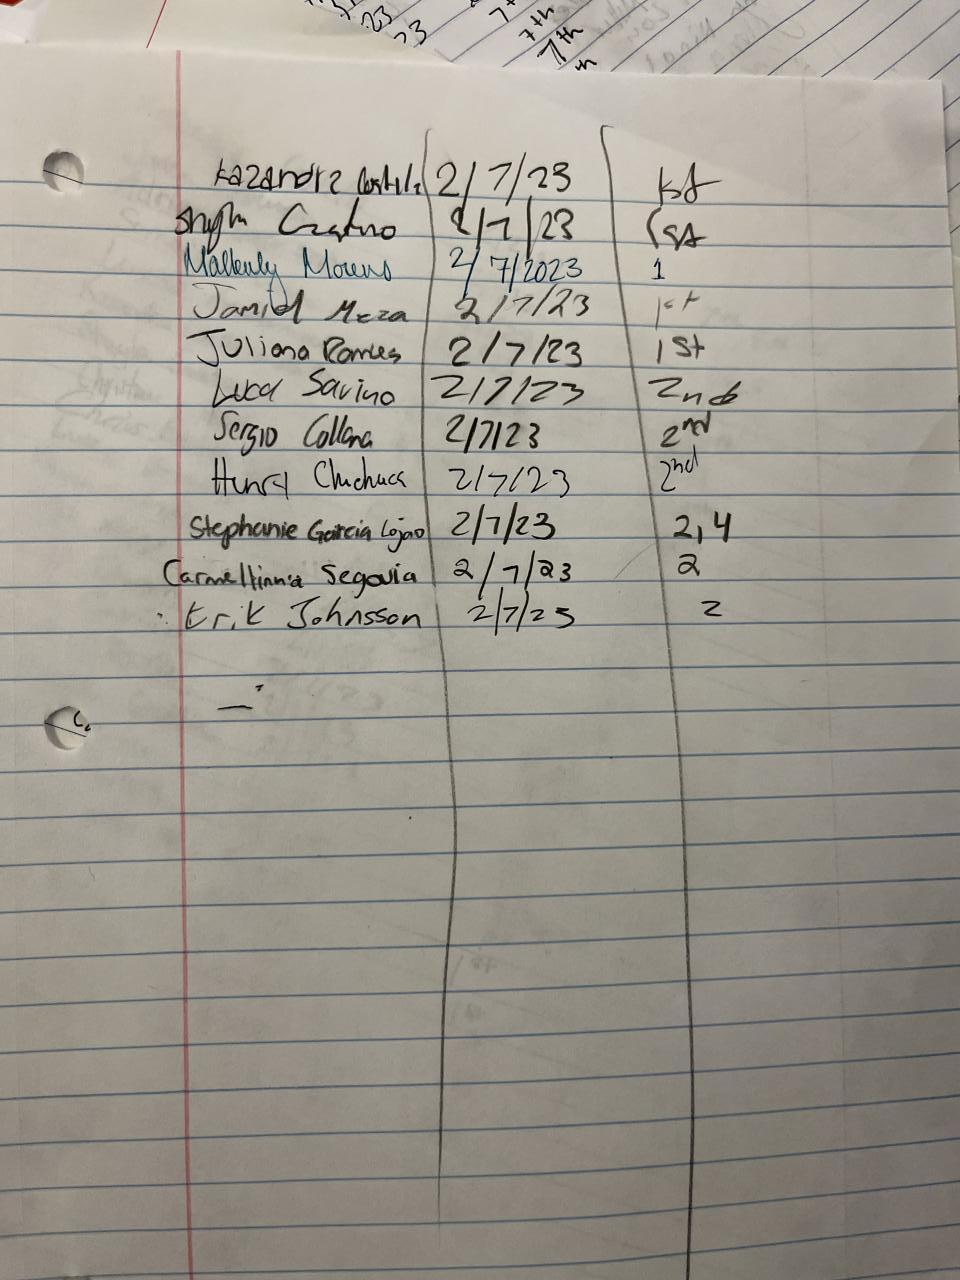 23
23
7th
7th
Kazandra 2/7/23 1st
2/7/23 1st
Mallenly Moreno 2/7/2023 1
Jamiel Meza 2/7/23 1st
Juliana Ramies 2/7/23 1st
Luca Savino 2/7/23 2nd
Sergio Collana 2/7/23 2nd
Henry Chuchuca 2/7/23 2nd
Stephanie Garcia Lojano 2/7/23 2,4
Segovia 2/7/23 2
Erik Johnsson 2/7/23 2